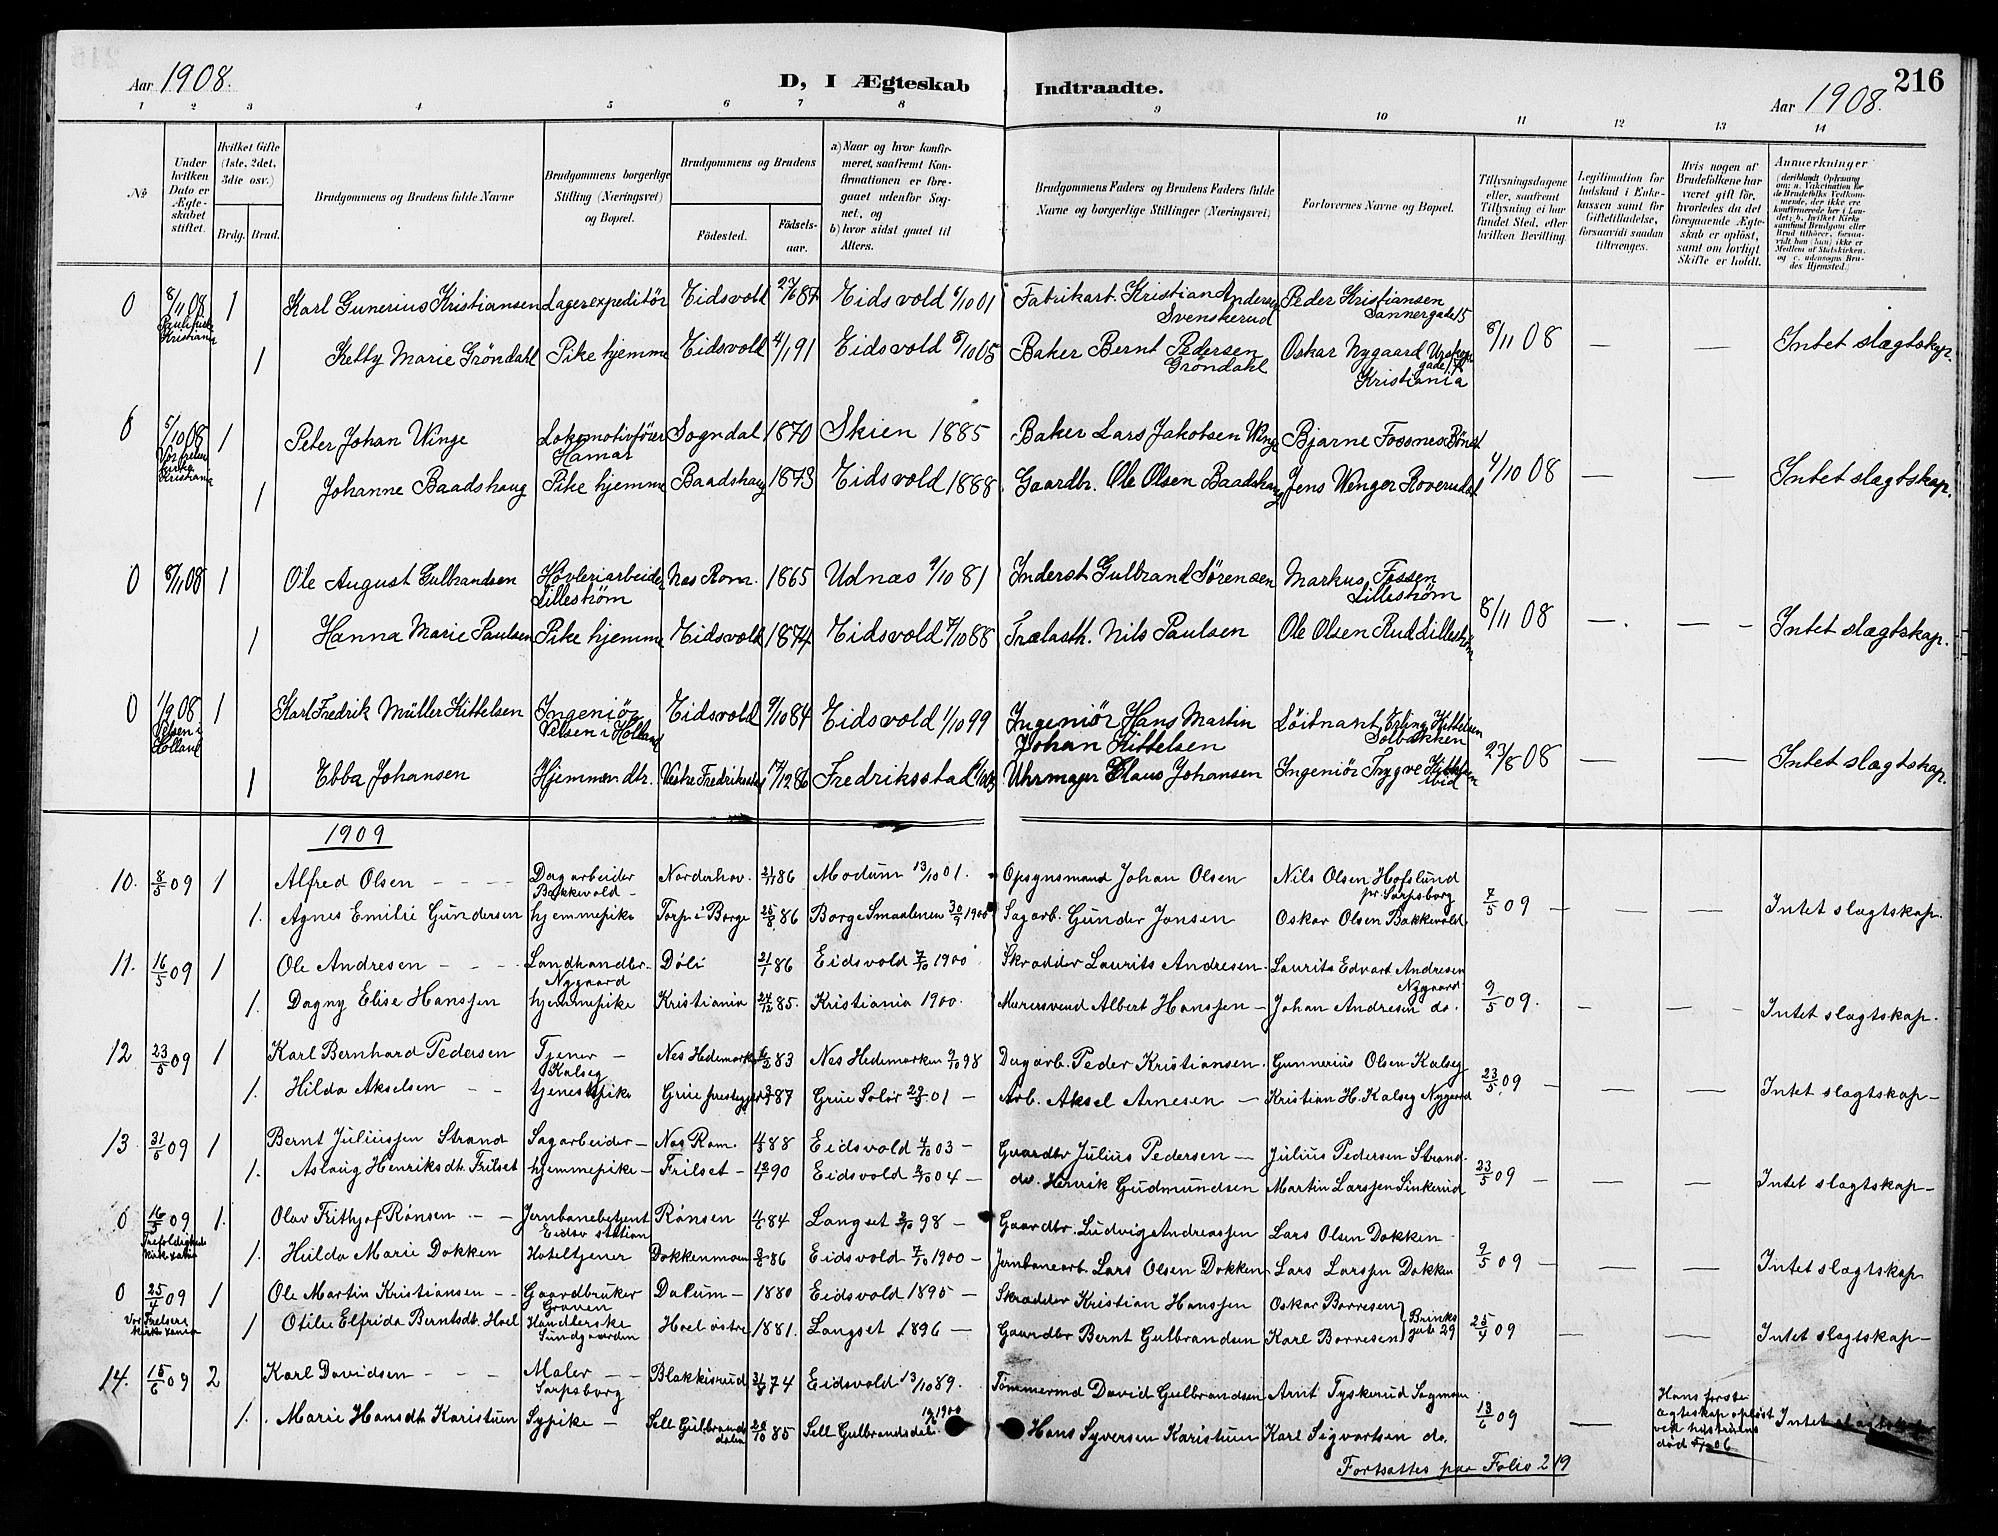 216
Aar 1908.
D, I Ægteskab Indtraadte.
Aar 1908.
1 2 3 4 5 6 7 8 9 10 11 12 13 14
№
Under hvilken Dato er Ægteskabet stiftet.
Hvilket Gifte (1ste, 2det, 3die osv.)
Brdg. Brud.
Brudgommens og Brudens fulde Navne
Brudgommens borgerlige Stilling (Næringsvei) og Bopæl.
Brudgommens og Brudens
Fødested.
Fødselsaar.
a) Naar og hvor konfirmeret, saafremt Konfirmationen er foregaaet udenfor Sognet, og
b) hvor sidst gaaet til Alters.
Brudgommens Faders og Brudens Faders fulde Navne og borgerlige Stillinger (Næringsvei)
Forlovernes Navne og Bopæl.
Tillysningsdagene eller, saafremt Tillysning ei har fundet Sted, efter hvilken Bevilling.
Legitimation for Indskud i Enkekassen samt for Giftetilladelse, forsaavidt saadan tiltrænges.
Hvis nogen af Brudefolkene har været gift før, hvorledes da det foregaaende Ægteskab er opløst, samt om lovligt Skifte er holdt.
Anmerkninger (deriblandt Oplysning om: a. Vaccination for de Brudefolks Vedkommende, der ikke ere konfirmerede her i Landet; b. hvilket Kirkesamfund Brudgom eller Brud tilhører, forsaavidt han (hun) ikke er Medlem af Statskirken, og c. udensogns Brudes Hjemsted.)
0 8/11 08 1 Karl Gunerius Kristiansen Lagerexpeditör Eidsvold 87 Eidsvold 6/10 01 Fabrikarb. Kristian Andersen Svenskerud Peder Kristiansen Sannergade 15
Kristiania
1 Ketty Marie Gröndahl Pike hjemme Eidsvold 4/1 91 Eidsvold 8/10 05 Baker Bernt Pedersen Gröndahl Oskar Nygaard Kristiania 8/11 08 — — Intet slægtskap.
0 5/10 08 1 Peter Johan Winge Lokomotivförer Hamar Sogndal 1870 Skien 1885 Baker Lars Jakobsen Winge Bjarne Fossnes
Kristiania
1 Johanne Baadshaug Pike hjemme Baadshaug 1873 Eidsvold 1888 Gaardbr. Ole Olsen Baadshaug Jens Wenger Roverudst 4/10 08 — — Intet slægtskap.
0 8/11 08 1 Ole August Gulbrandsen Høvleriarbeider Lillestrøm Nes Rom. 1865 Udnæs 9/10 81 Inderst Gulbrand Sørensen Markus Fossen Lillestrøm
1 Hanna Marie Paulsen Pike hjemme Eidsvold 1874 Eidsvold 7/10 88 Trælasth. Nils Paulsen Ole Olsen Rud Lillestrøm 8/11 08 — — Intet slægtskap.
0 1/9 08 Velsen i Holland 1 Karl Fredrik Müller Kittelsen Ingeniör Velsen i Holland Eidsvold 9/10 84 Eidsvold 1/10 99 Ingeniör Hans Martin Johan Kittelsen Löitnant Erling Kittelsen Solbakken
1 Ebba Johansen Hjemmev. dtr. Vestre Fredriksstad 17/12 86 Fredriksstad Uhrmager Claus Johansen Ingeniör Trygve Kittelsen ibid 23/8 08 — — Intet slægtskap.
1909
10. 8/5 09 1 Alfred Olsen - - - Dagarbeider Bakkevold - Norderhov. 21/11 86 Modum 13/10 01. Opsynsmand Johan Olsen Nils Olsen Hofslund pr Sarpsborg
1. Agnes Emilie Gundersen hjemmepike Torp i Borge 25/8 86 Borge Smaalenene 30/9 1900 Sagarb. Gunder Jonsen Oskar Olsen Bakkevold. 7/5 09 — — — Intet slægtskap.
11. 16/5 09 1 Ole Andresen - - - Landhandler Nygaard Döli 21/1 86 Eidsvold 7/10 1900 Skrædder Laurits Andresen Laurits Edvart Andresen Nygaard
1. Dagny Elise Hanssen hjemmepike Kristiania 24/12 85. Kristiania 1900. Murersvend Albert Hanssen - Johan Andresen do. 9/5 09. — — — Intet slægtskap.
12 23/5 09 1 Karl Bernhard Pedersen Tjener - Kalseg Nes Hedemarken 83 Nes Hedemarken 9/10 98 Dagarb. Peder Kristiansen. Gunnerius Olsen Kalseg
1. Hilda Akselsen - - tjenestpike Grue prestegjeld 87 Grue Solör 29/9 01 - Arb. Aksel Arnesen - Kristian H. Kalseg Nygaard 23/5 09 — — — Intet slægtskap -
13 31/5 09 1 Bernt Juliussen Strand Sagarbeider - Nes Rom. 4/3 88 Eidsvold 4/10 03 - Gaardbr Julius Pedersen - Julius Pedersen Strand
1. Aslaug Henriksdt. Frilset hjemmepike - Frilset - 12/1 90 Eidsvold 2/10 04 - do. Henrik Gudmundsen Martin Larssen Sinkerud 23/5 09 - — — Intet slægtskap -
0 16/5 09 Trefoldigheds kirk Xania 1. Olav Frithjof Rönsen - - Jernbanebetjent Eidsv station Rönsen 4/5 84 Langset 2/10 98 - Gaardbr. Ludvig Andreassen Lars Olsen Dokken
1. Hilda Marie Dokken Hoteltjener Dokkenmoen 86 Eidsvold 7/10 1900 - Jernbanearb. Lars Olsen Dokken Lars Larssen Dokken 9/5 09 — — — Intet slægtskap
0 25/4 09 Vor Frelsers kirk Xania 1 Ole Martin Kristiansen - - Gaardbruker Graven Dalum - 1880 Eidsvold 1895 - Skrædder Kristian Hanssen Oskar Borresen
1 Otilie Elfrida Berntsdt. Hoel Handlerske Sundgaarden Hoel östre 1881. Langset 1896 - Gaardbr Bernt Gulbrandsen Karl Borresen } Brinks gate 29 25/4 09 — — — Intet slægtskap -
14. 15/6 09 2 Karl Davidsen - - Maler - - Sarpsborg Blakkisrud 31/8 74 Eidsvold 13/10 89. Tömmermd David Gulbrandsen Arnt Tyskerud Sagmoen
1. Marie Hansdt Karistuen Sypike - Sell Gulbrandsdalen 20/10 85 Sell Gulbrandsdal. 1900 Hans Syversen Karistuen Karl Sigvartsen do. 13/6 09 — Hans første ægteskap opløst ved hustruens død 06 Intet slægtskap
Fortsættes paa Folio 219